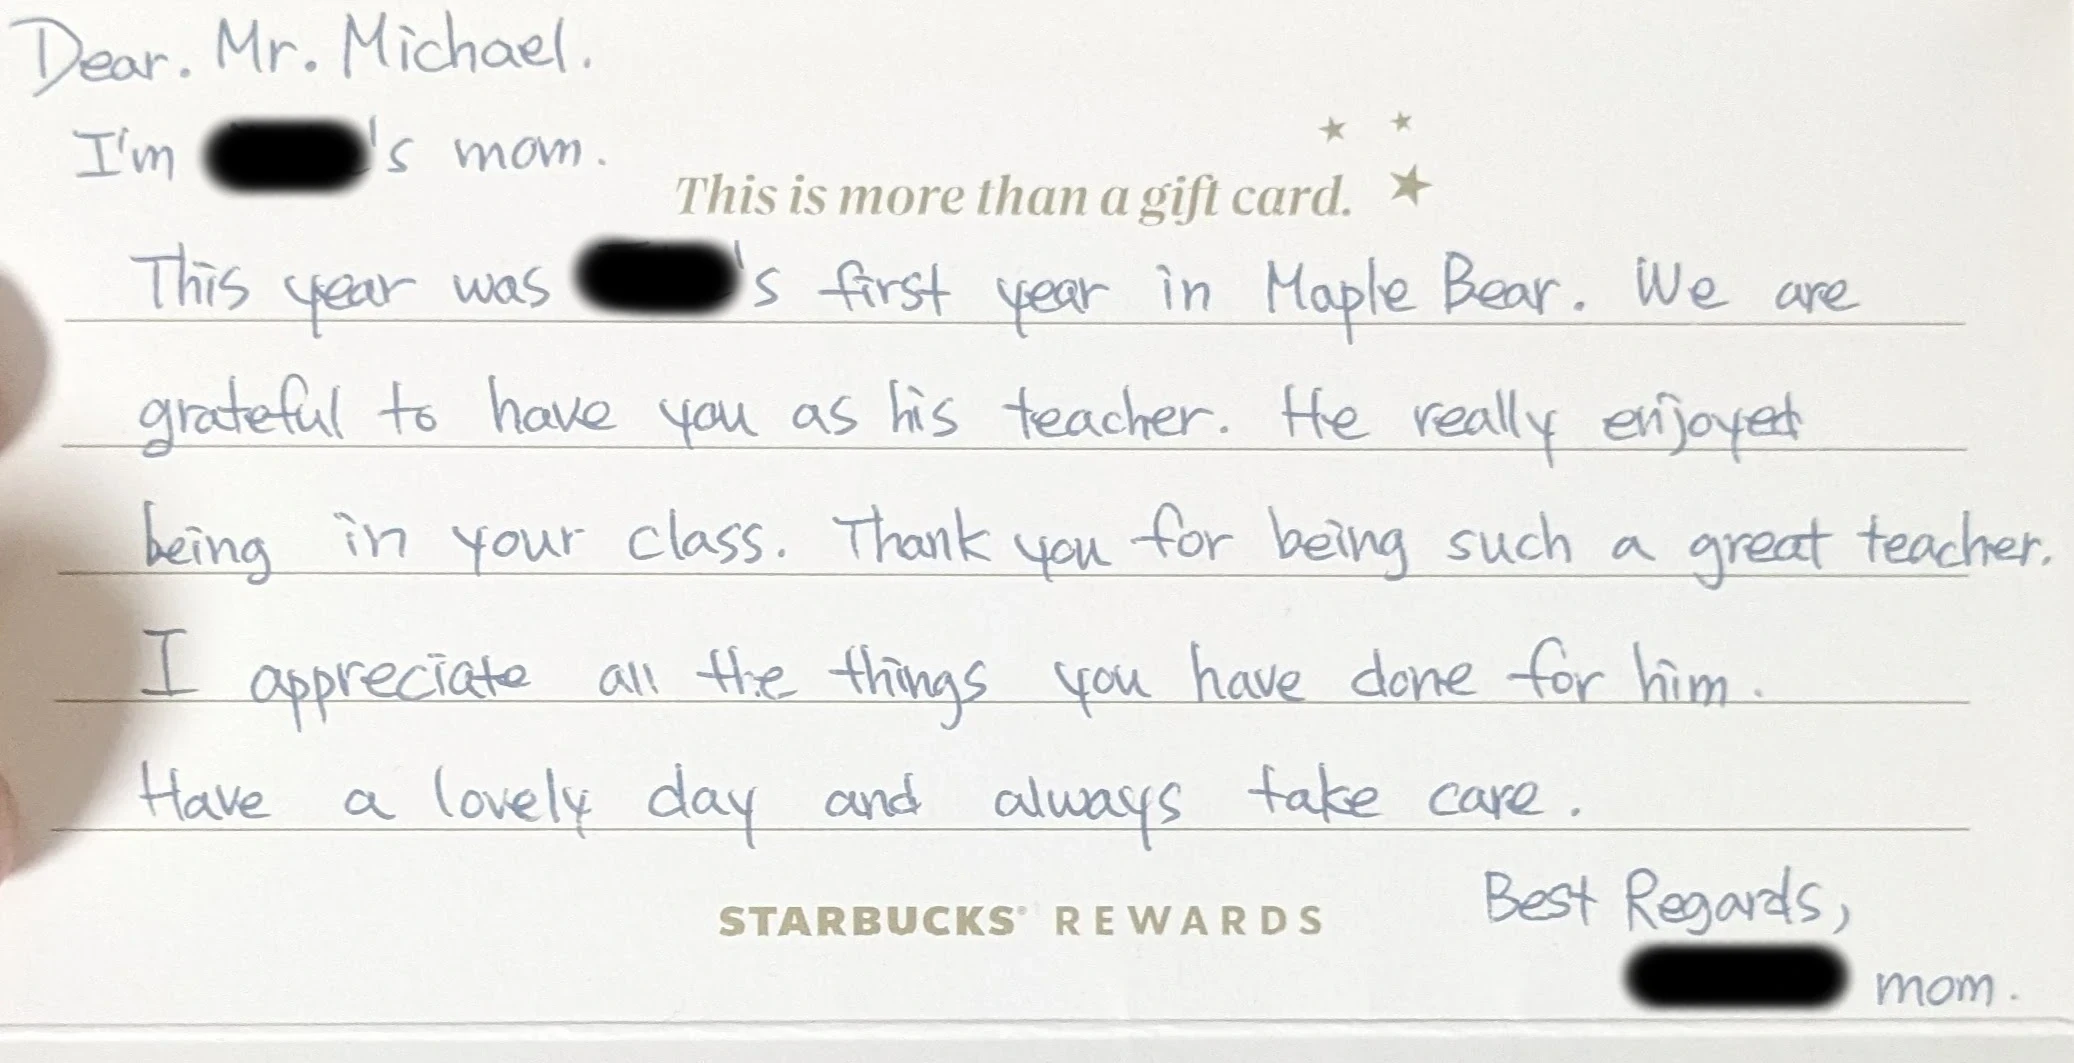 Dear. Mr. Michael.
I'm 's mom.
This is more than a gift card.
This year was 's first year in Maple Bear. We are
grateful to have you as his teacher. He really enjoyed
being in your class. Thank you for being such a great teacher.
I appreciate all the things you have done for him.
Have a lovely day and always take care.
STARBUCKS® REWARDS
Best Regards,
mom.